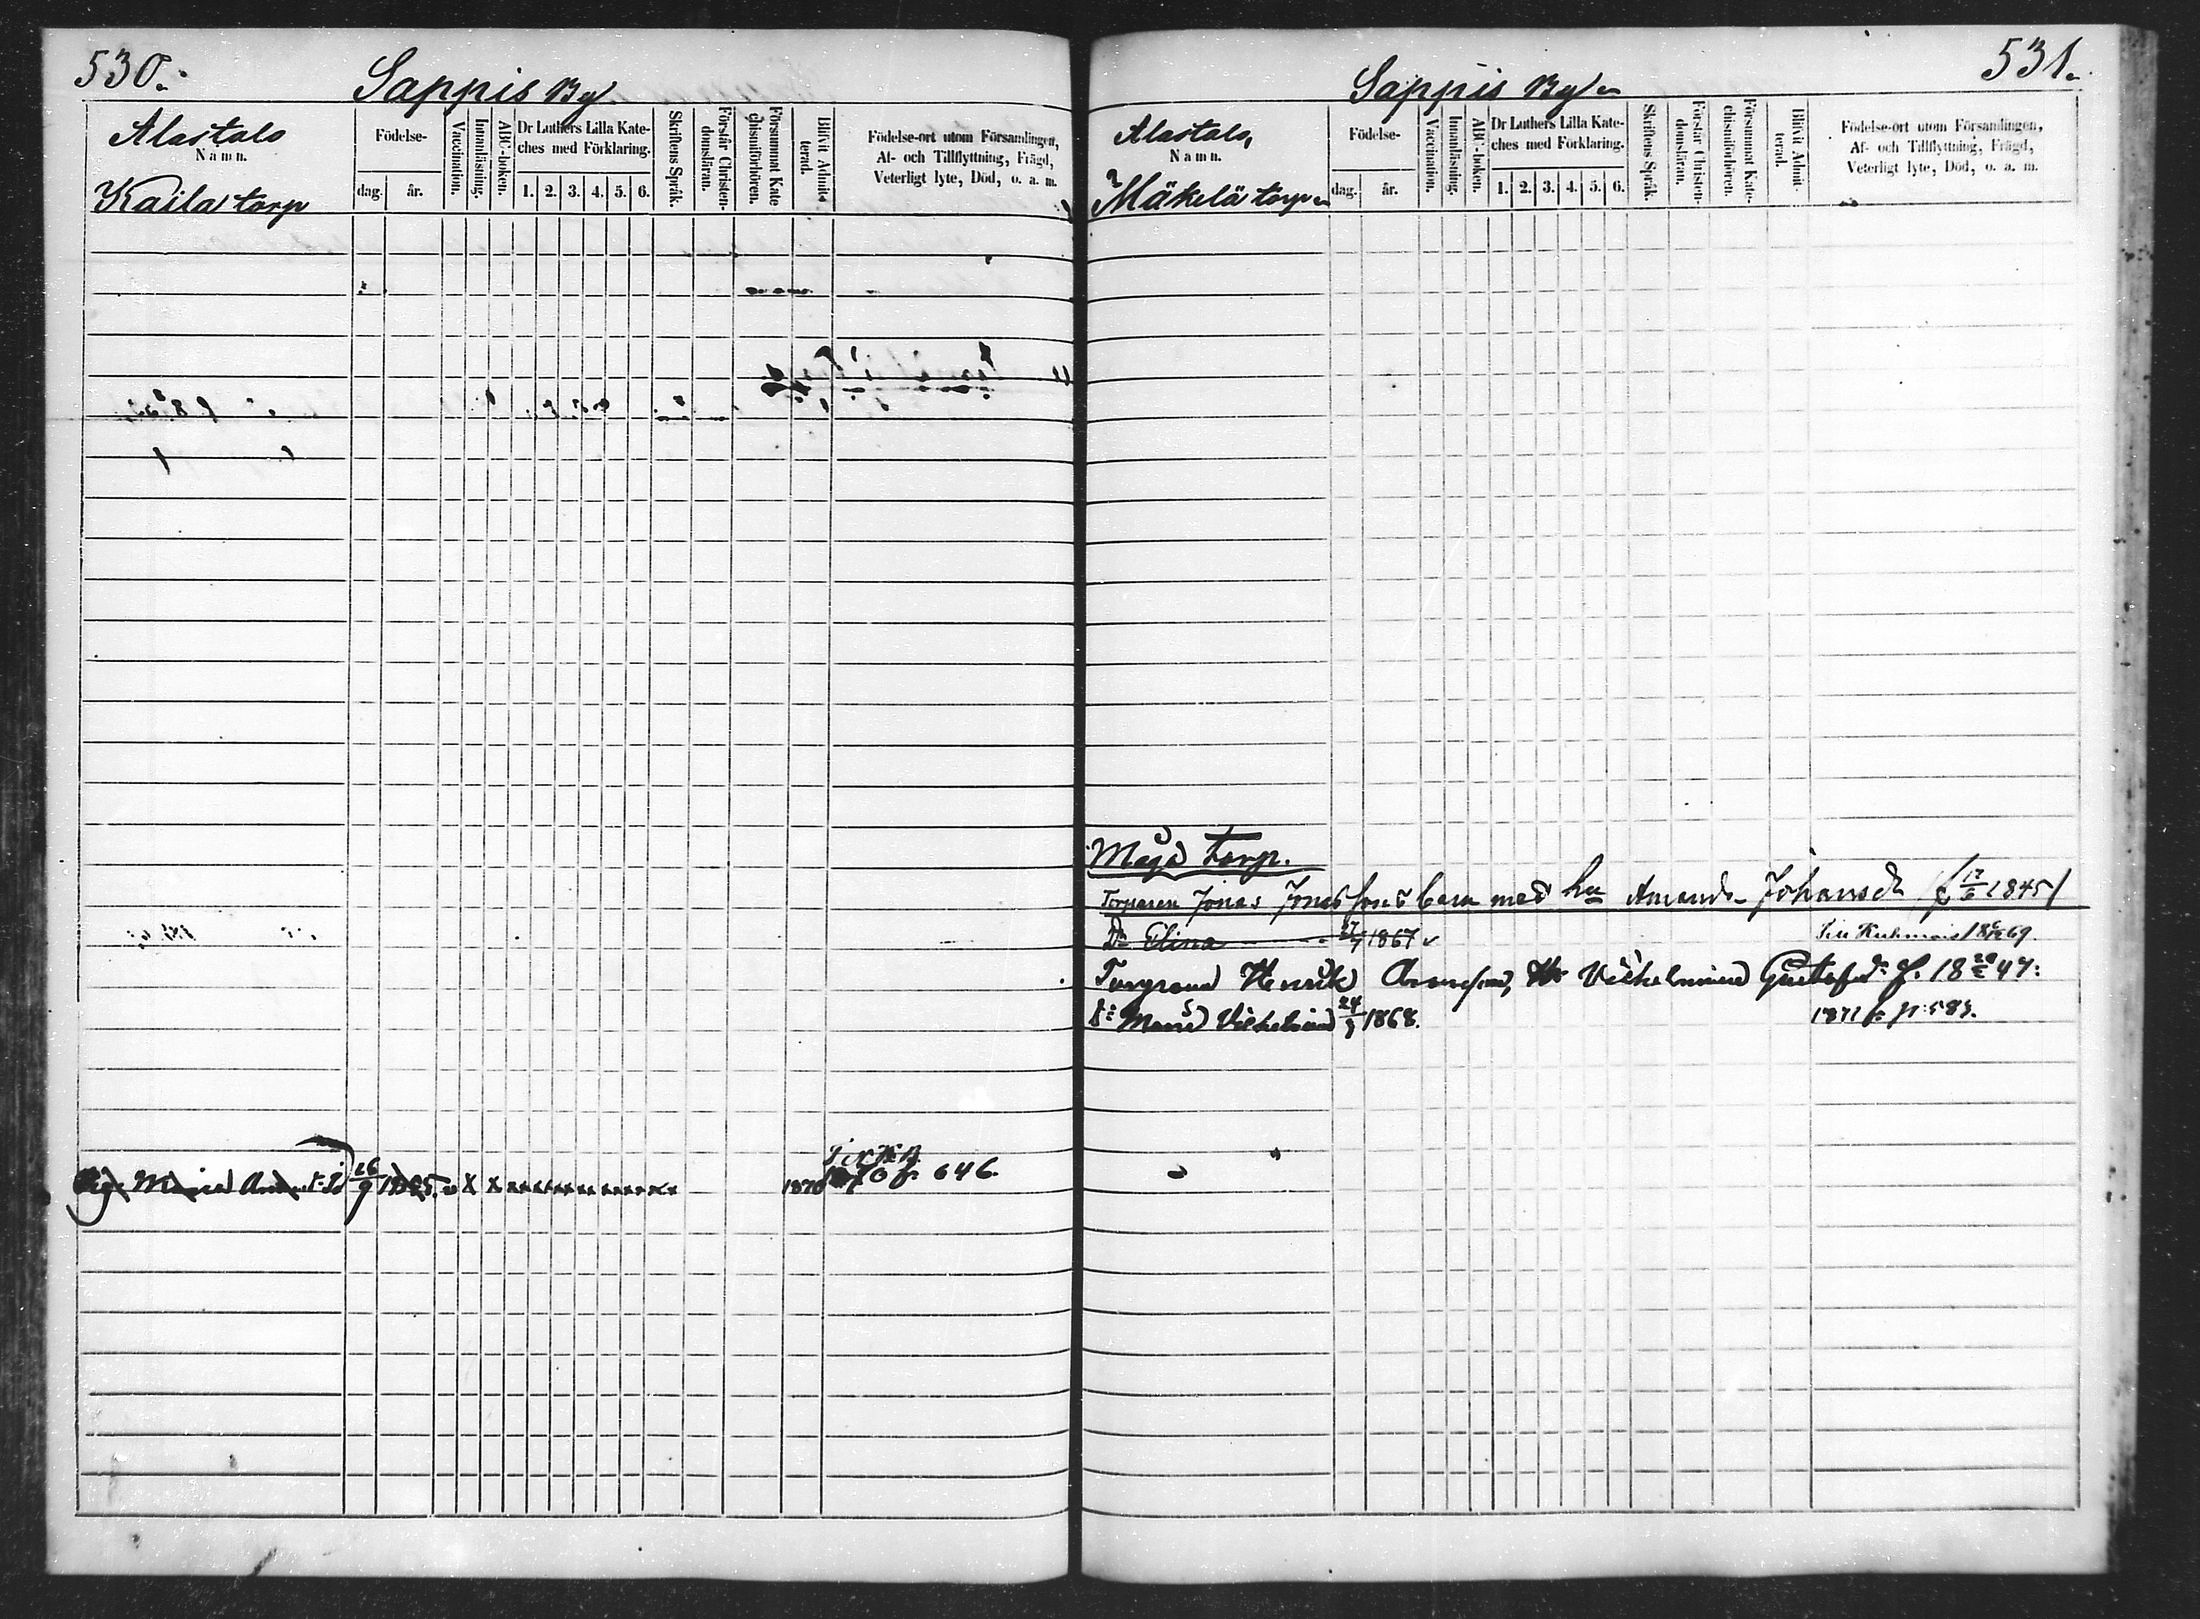 530.
Sappis By
Alastalo
Namn.
Kaila torp
Födelse-
dag. år.
Vaccination.
Innanläsning.
ABC-boken.
Dr Luthers Lilla Kate-
ches med Förklaring.
1. 2. 3. 4. 5. 6.
Skriftens Språk.
Förstår Christen-
domsläran.
Försummat Kate
chismiförhören.
Blifvit Admit-
terad.
Födelse-ort utom Församlingen,
Af- och Tillflyttning, Frägd,
Veterligt lyte, Död, o. a. m.
Maria 26/9 x x 1870 1870 p. 646.
531.
Sappis By
Alastalo,
Namn.
Mäkelä torp
Födelse-
dag. år.
Vaccination.
Innanläsning.
ABC-boken.
Dr Luthers Lilla Kate-
ches med Förklaring.
1. 2. 3. 4. 5. 6.
Skriftens Språk.
Förstår Christen-
domsläran.
Försummat Kate-
chismiförhören.
Blifvit Admit-
terad.
Födelse-ort utom Församlingen,
Af- och Tillflyttning, Frägd,
Veterligt lyte, Död, o. a. m.
Maja torp.
Torparen Jonas Jonassons barn med hu Amanda Johansdr (f 17/6 1845)
Dr Elina 1867 Till Kuhmois 69.
Henrik Vilhelmina Gustafsdr f. 18 47.
Maria Vilhelmina 24/9 1868. 1871 p. 583.